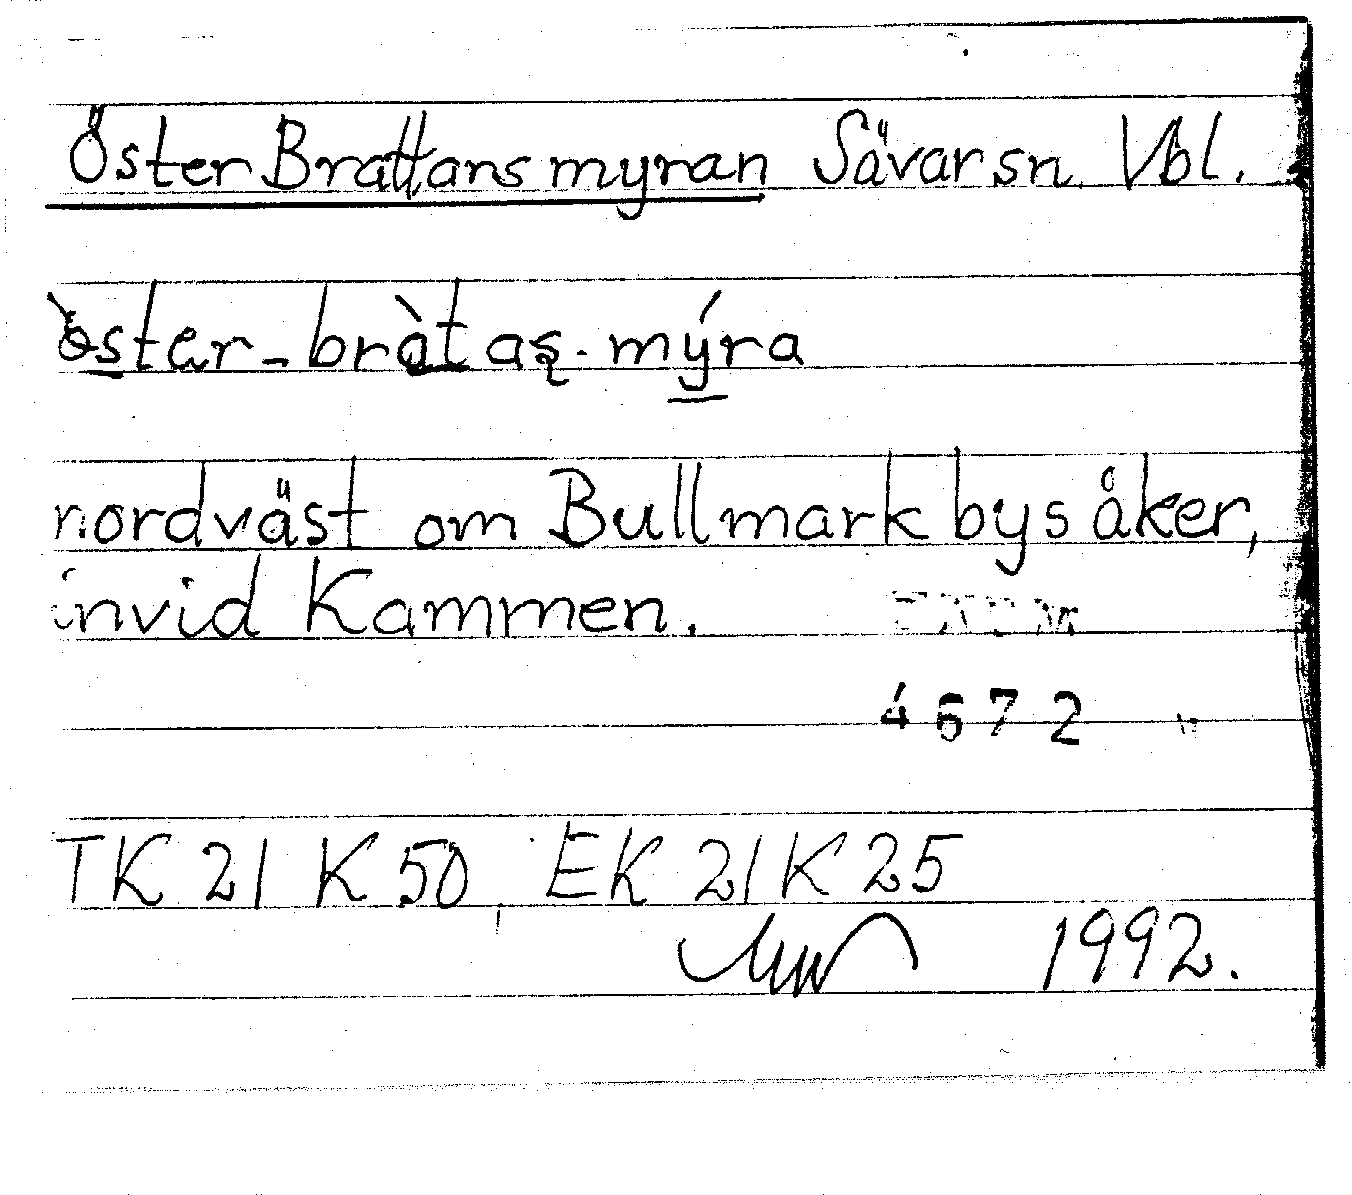 Öster Brattansmyran Sävar sn. Vbl.
òstər-bràtas-mýra
nordväst om Bullmark bys åker,
invid Kammen.
4672
TK 21 K 50, EK 21 K 25
1992.